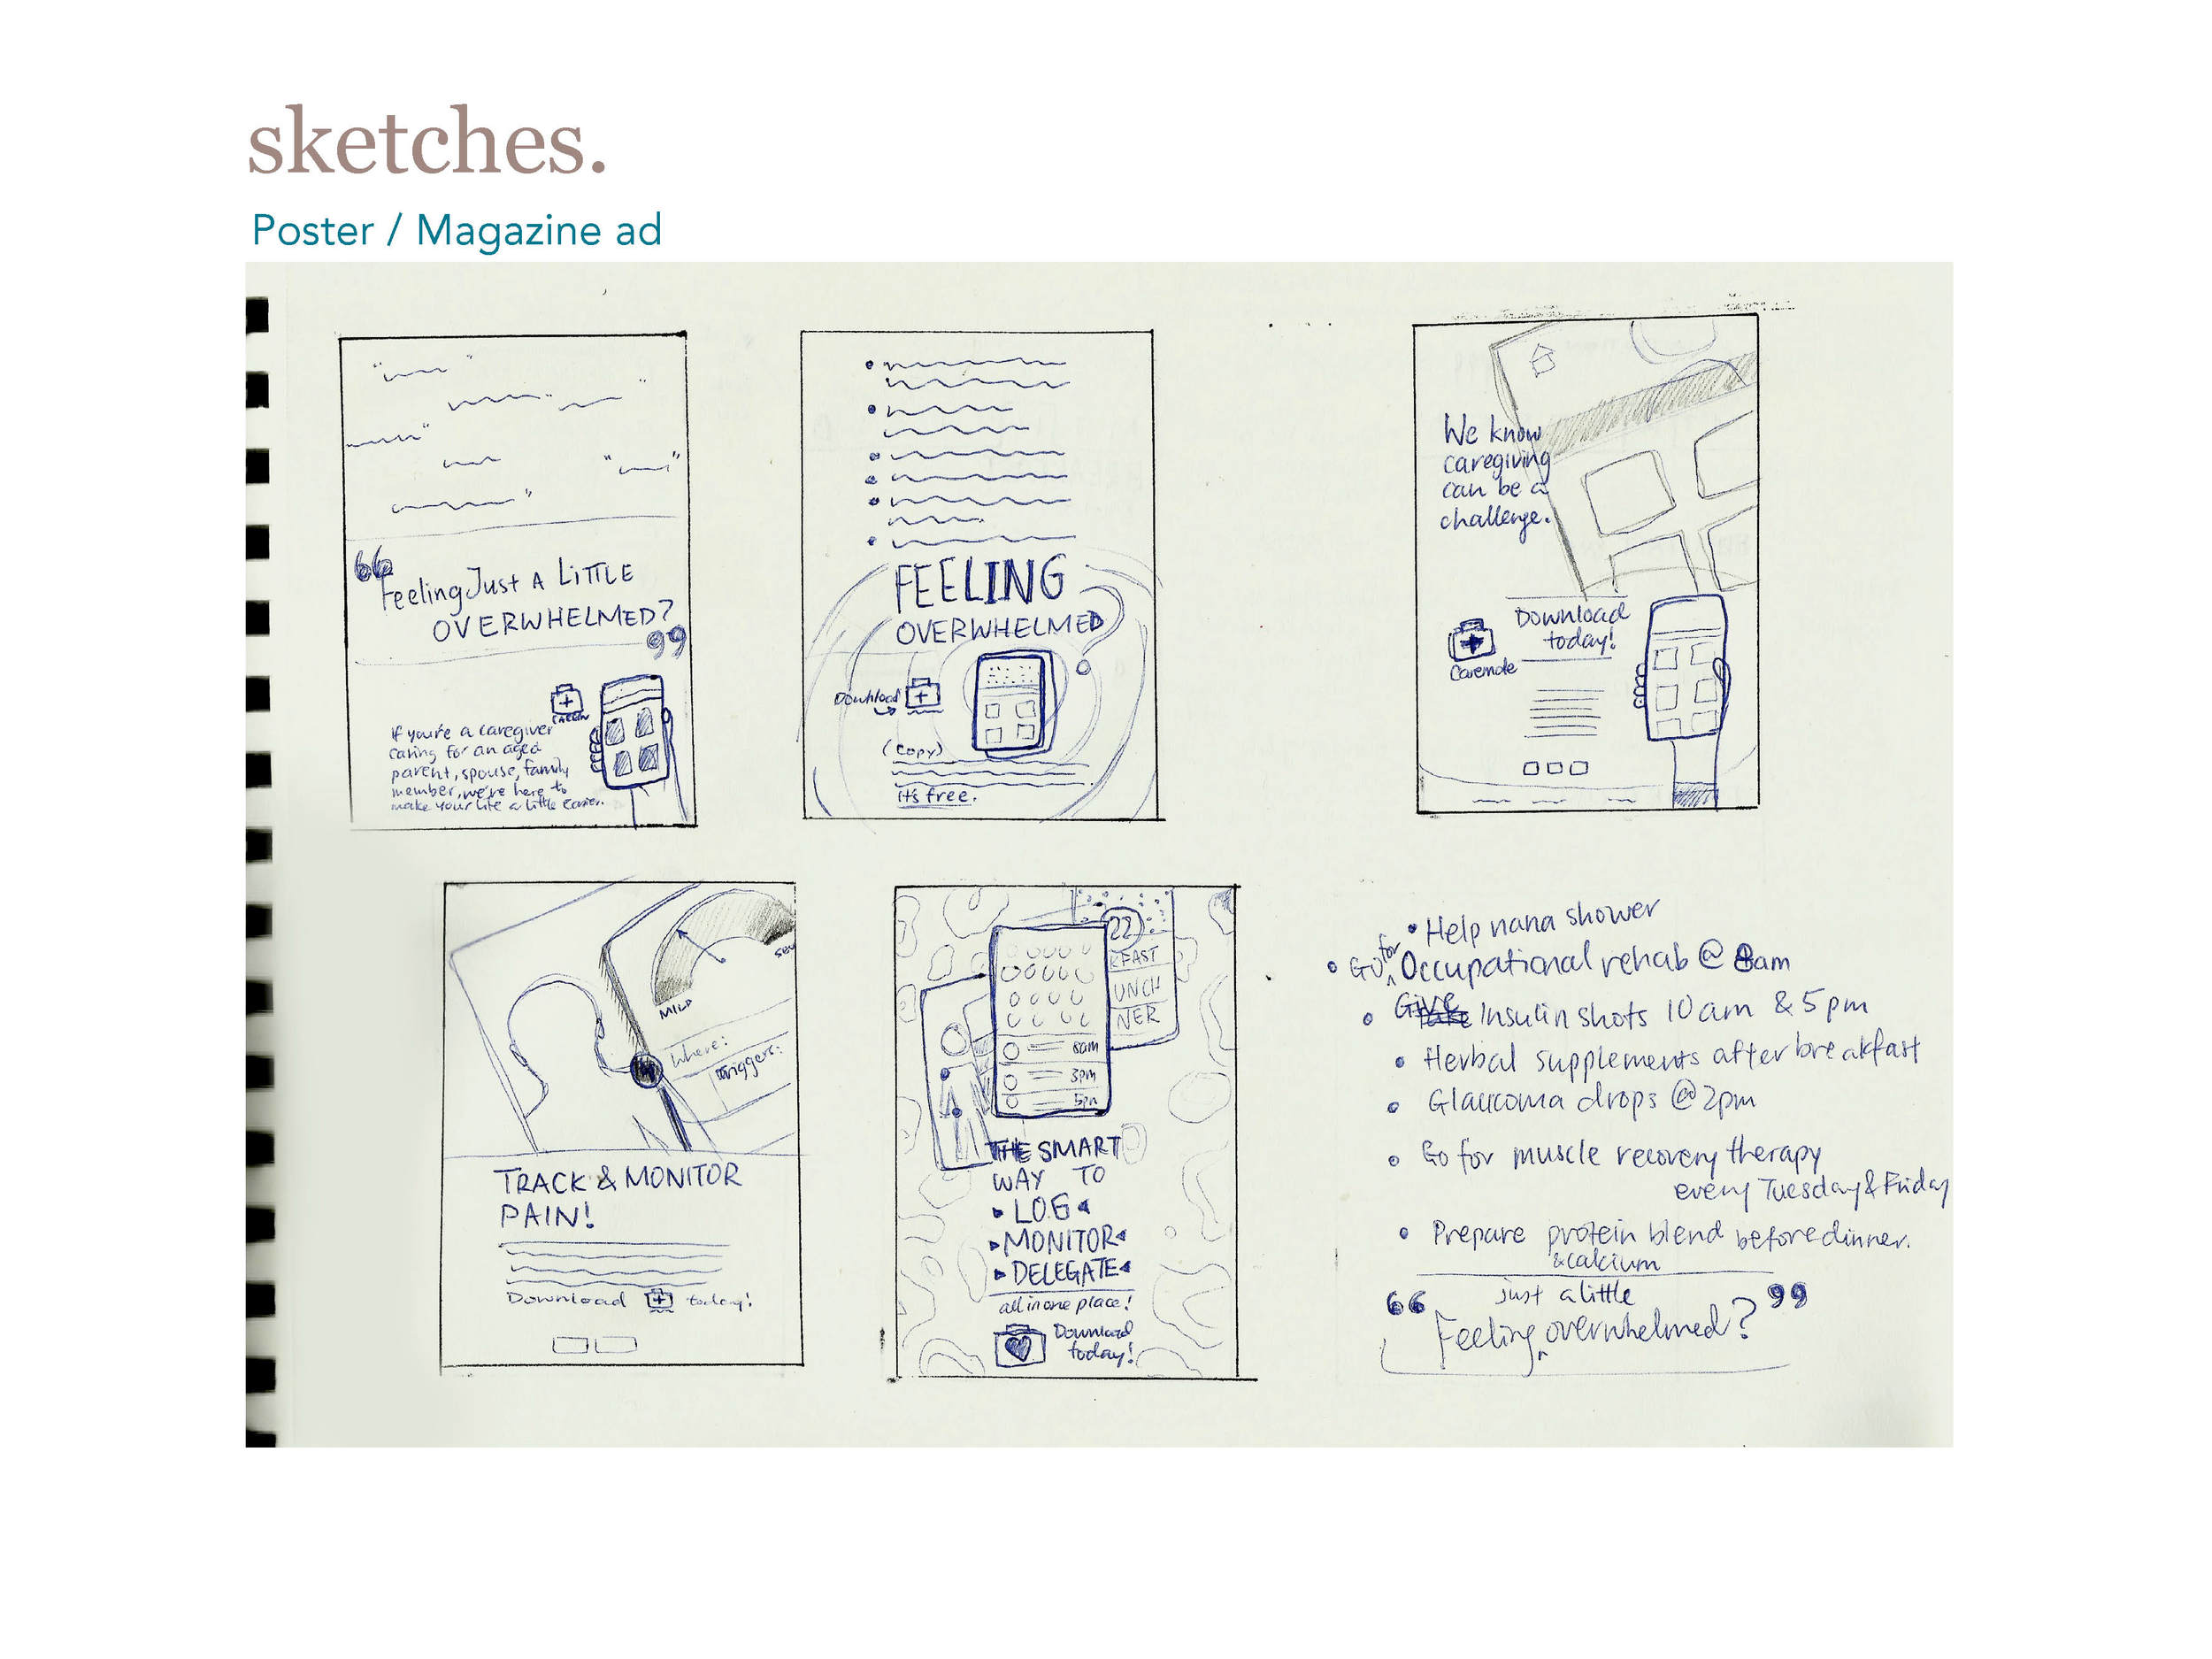 sketches.
Poster / Magazine ad
"Feeling Just A LITTLE
OVERWHELMED?"
If you're a caregiver
caring for an aged
parent, spouse, family
member, we're here to
make your life a little easier.
FEELING
OVERWHELMED?
Download
(copy)
it's free.
We know
caregiving
can be a
challenge.
Download
today!
MILD
Where:
Triggers:
TRACK & MONITOR
PAIN!
Download today!
22
KFAST
UNCH
NER
8am
3pm
5pm
THE SMART
WAY TO
LOG
MONITOR
DELEGATE
all in one place!
Download
today!
• Help nana shower
• Go for Occupational rehab @ 8am
• Give Insulin shots 10am & 5pm
• Herbal supplements after breakfast
• Glaucoma drops @ 2pm
• Go for muscle recovery therapy
every Tuesday & Friday
• Prepare protein blend before dinner.
& calcium
just a little
"Feeling overwhelmed?"